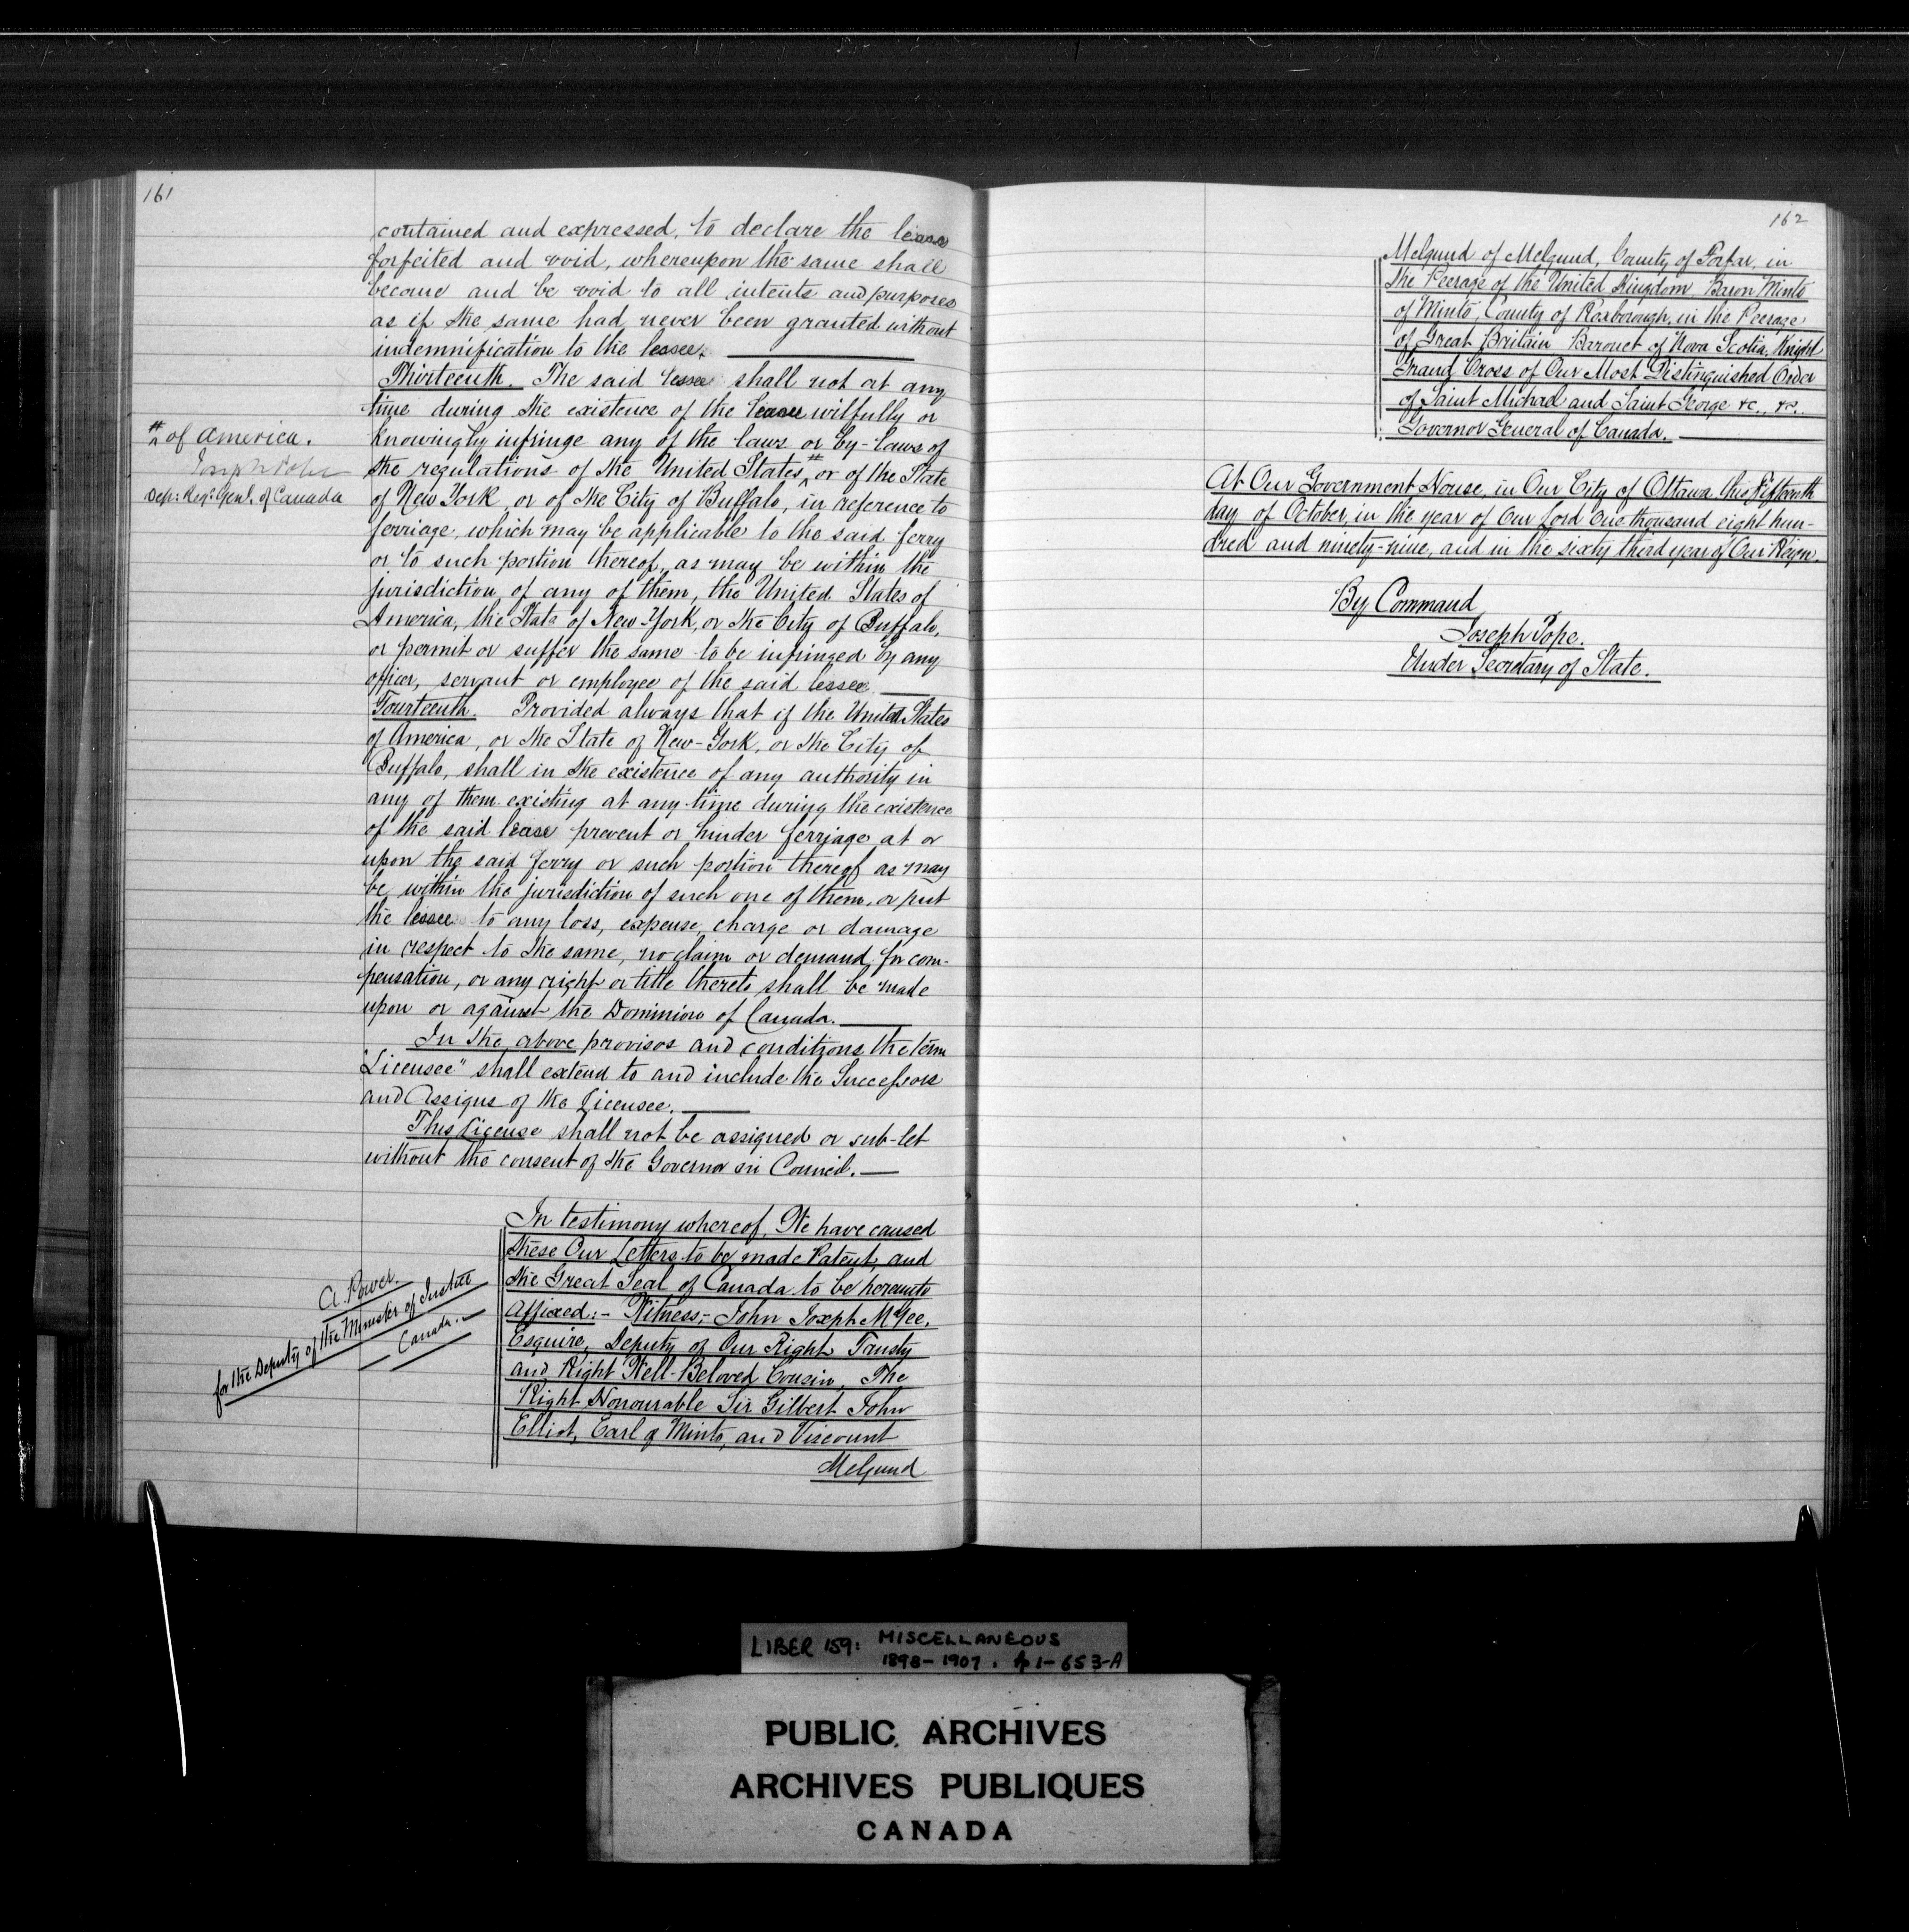 161
contained and expressed, to declare the lease
forfeited and void, whereupon the same shall
become and be void to all intents and purposes
as if the same had never been granted without
indemnification to the lessee.
Thirteenth. The said lessee shall not at any
time during the existence of the lease wilfully or
knowingly infringe any of the laws or by-laws of
the regulations of the United States # or of the State
of New York, or of the City of Buffalo, in reference to
ferriage, which may be applicable to the said ferry
or to such portion thereof, as may be within the
jurisdiction of any of them, the United States of
America, the State of New-York, or the City of Buffalo,
or permit or suffer the same to be infringed by any
officer, servant or employee of the said lessee
Fourteenth. Provided always that if the United States
of America, or the State of New-York, or the City of
Buffalo, shall in the existence of any authority in
any of them existing at any time during the existence
of the said lease prevent or hinder ferriage at or
upon the said ferry or such portion thereof as may
be within the jurisdiction of such one of them, or put
the lessee to any loss, expense, charge or damage
in respect to the same, no claim or demand for com-
pensation, or any right or title thereto shall be made
upon or against the Dominion of Canada.
In the above provisos and conditions the term
"Licensee" shall extend to and include the Successors
and Assigns of the Licensee.
This License shall not be assigned or sub-let
without the consent of the Governor in Council.
# of America.
Joseph Pope
Dep: Reg: Genl. of Canada
In testimony whereof, We have caused
these Our Letters to be made Patent, and
the Great Seal of Canada to be hereunto
affixed:- Witness,- John Joseph McGee,
Esquire, Deputy of Our Right Trusty
and Right Well-Beloved Cousin, The
Right Honourable Sir Gilbert John
Elliot, Earl of Minto, and Viscount
Melgund
A. Power.
for the Deputy of the Minister of Justice
Canada.
162
Melgund of Melgund, County of Forfar, in
the Peerage of the United Kingdom, Baron Minto
of Minto, County of Roxborough, in the Peerage
of Great Britain Baronet of Nova Scotia, Knight
Grand Cross of Our Most Distinguished Order
of Saint Michael and Saint George &c., &c.
Governor General of Canada.
At Our Government House, in Our City of Ottawa this Fifteenth
day of October, in the year of Our Lord One thousand eight hun-
dred and ninety-nine, and in the sixty third year of Our Reign.
By Command
Joseph Pope.
Under Secretary of State.
LIBER 159: MISCELLANEOUS
1898-1907. p 1-653-A
PUBLIC ARCHIVES
ARCHIVES PUBLIQUES
CANADA